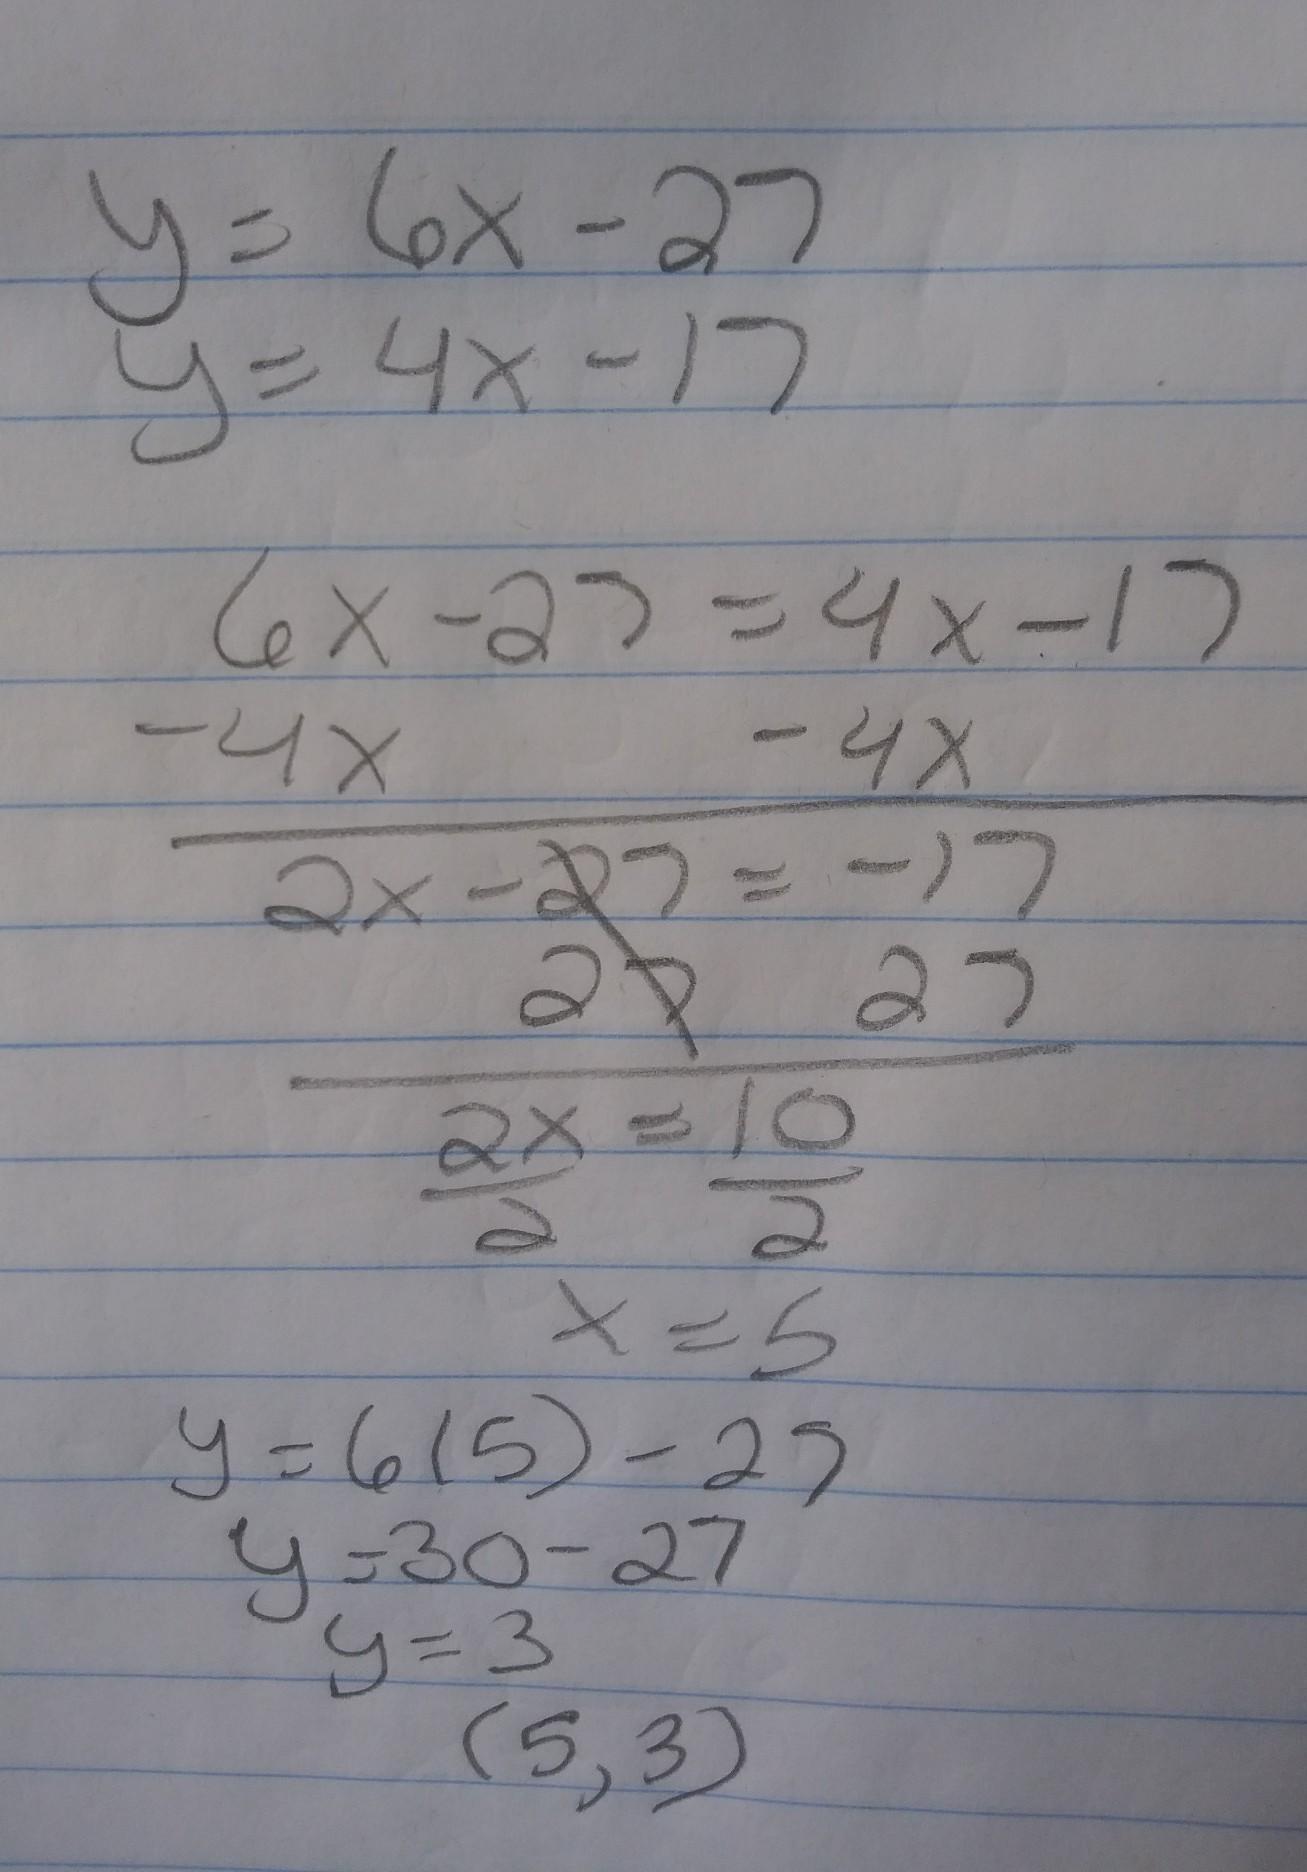 y = 6x - 27
y = 4x - 17
6x - 27 = 4x - 17
-4x - 4x
2x - 27 = -17
27 27
2x = 10
2 2
x = 5
y = 6(5) - 27
y = 30 - 27
y = 3
(5, 3)